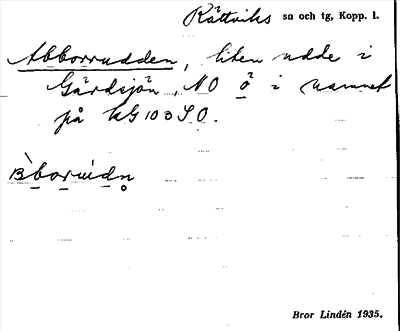 Rättviks sn och tg, Kopp. l.
Abborrudden, liten udde i
Gärdsjön, NO ö i namnet
på KG 103 SO.
Bror Lindén 1935.